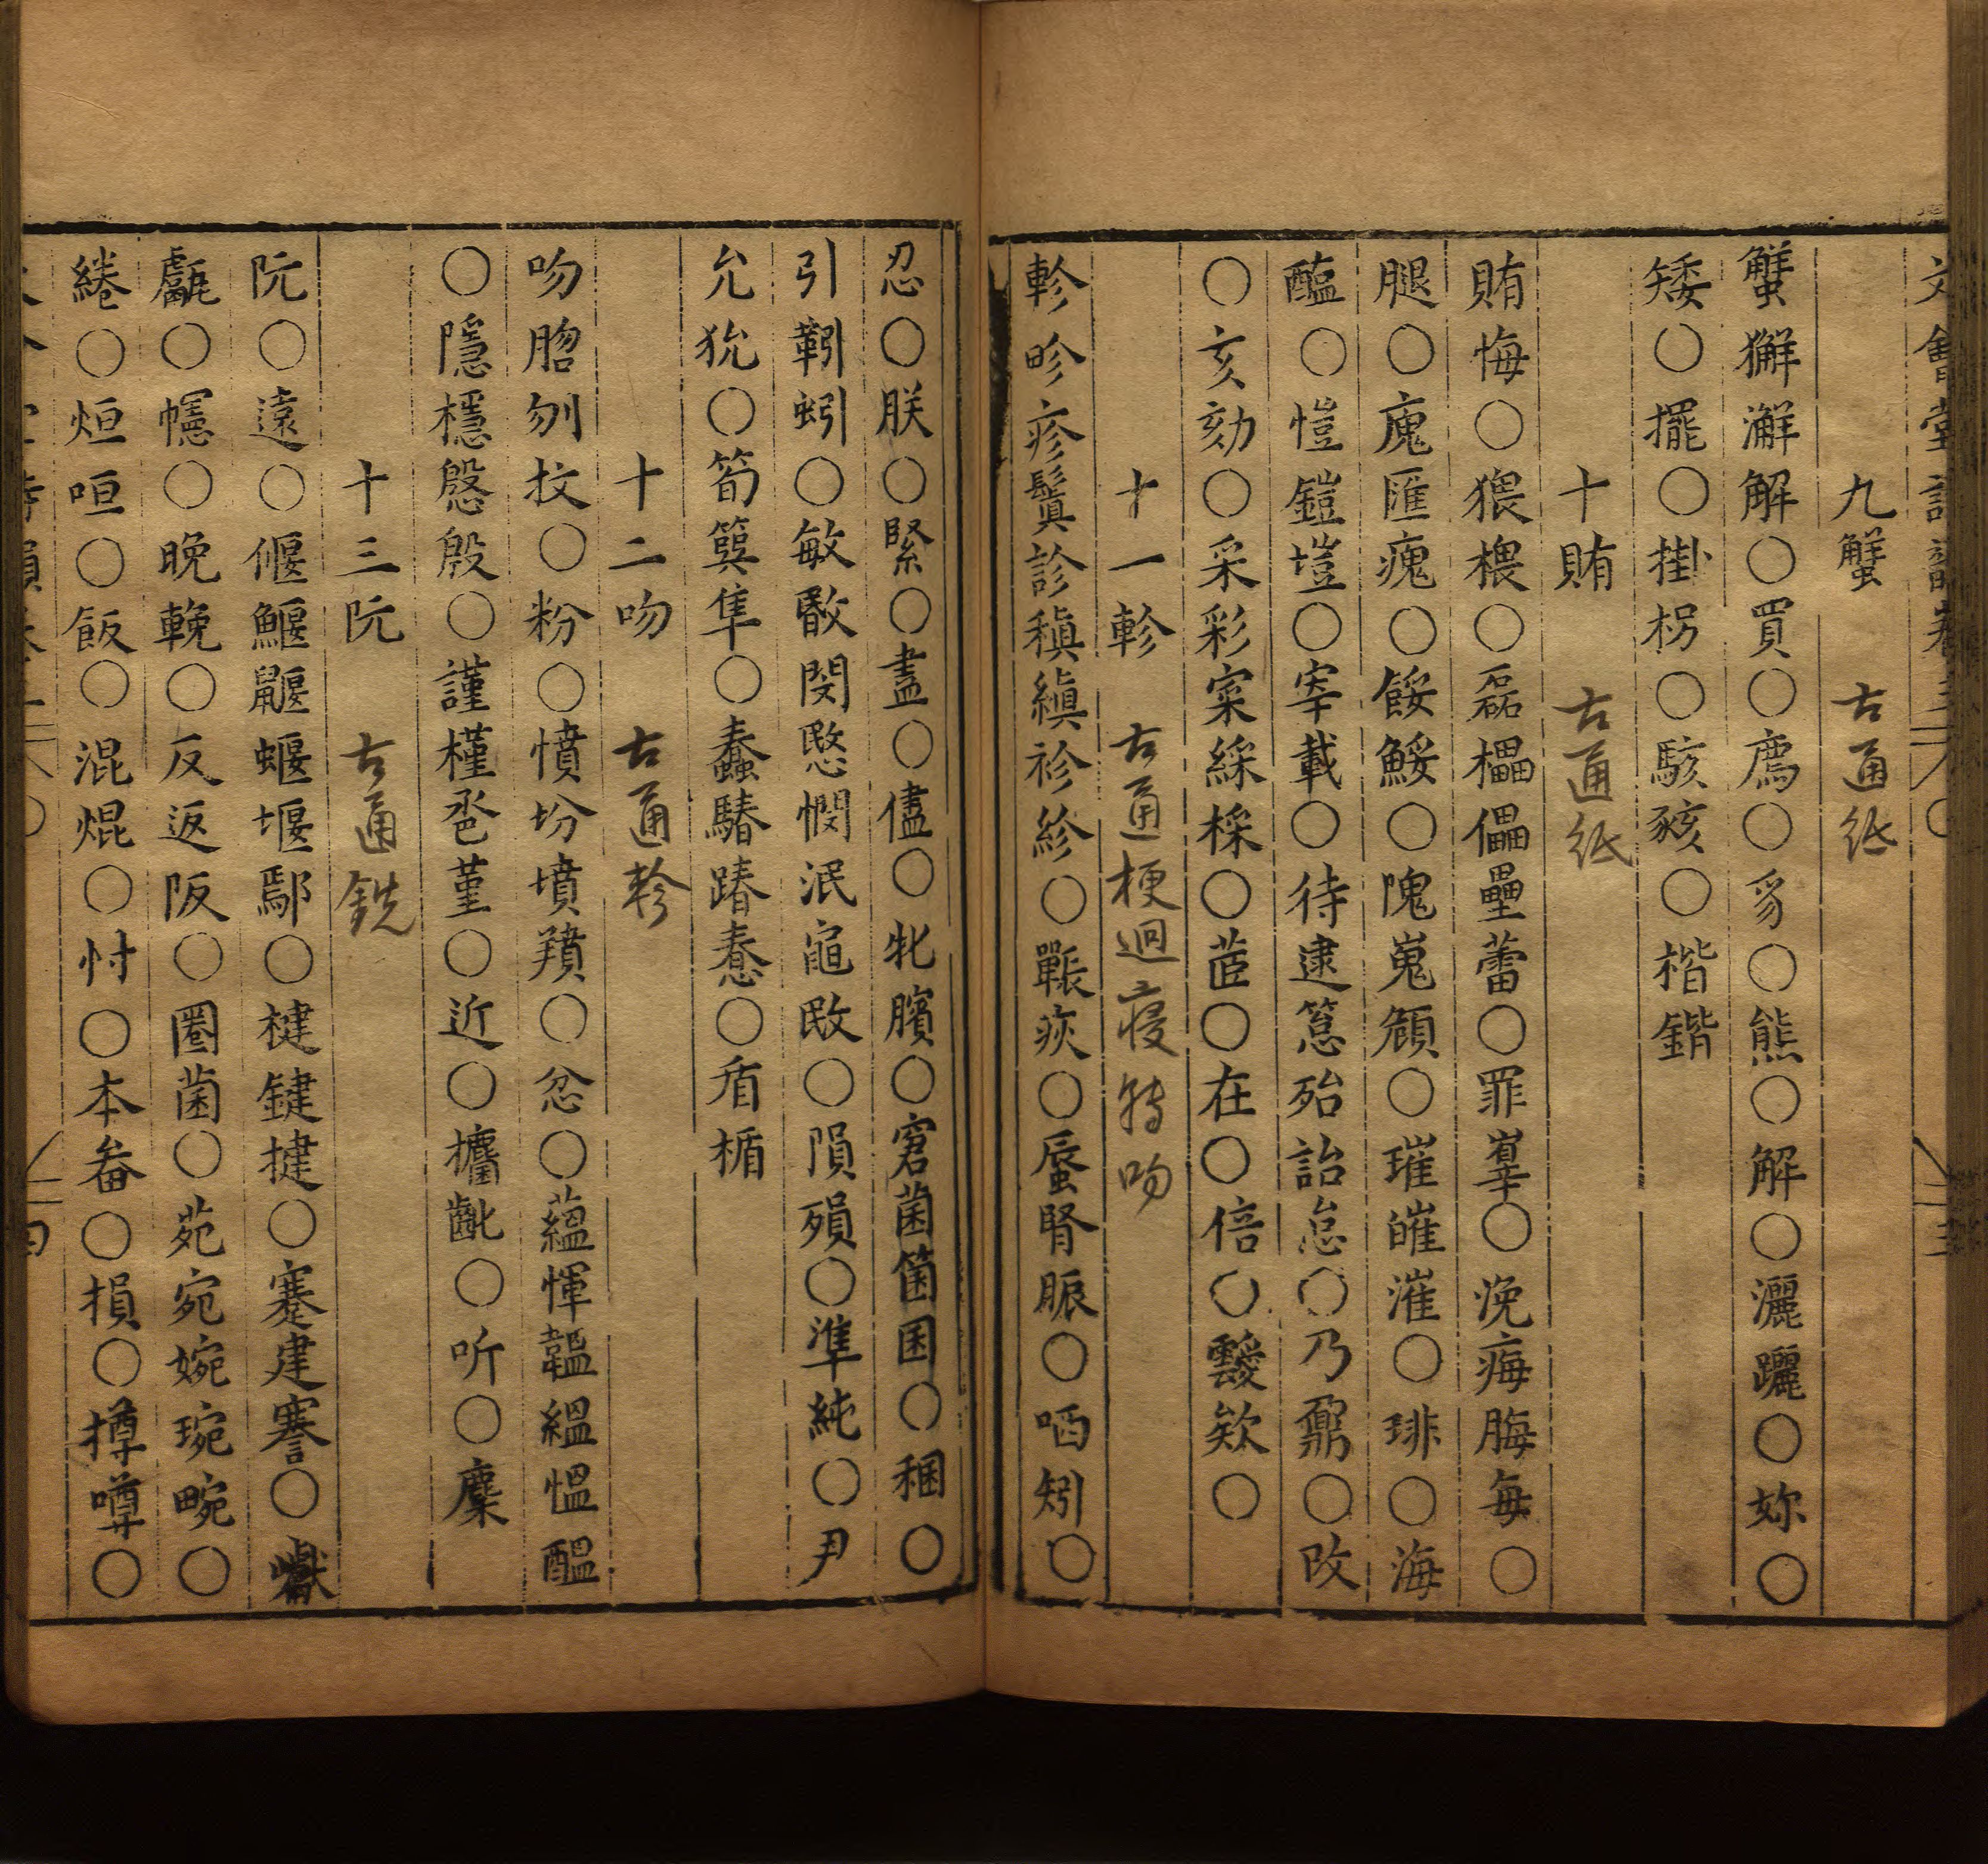 文會堂詩韻卷三
九蟹 古通紙
蟹獬澥解○買○廌○豸○熊○解○灑躧○妳○
矮○擺○掛柺○駭豥○楷鍇
十賄 古通紙
賄悔○猥椳○磊櫑儡壘蕾○罪辠○浼痗脢每○
腿○廆匯瘣○餒鮾○隗嵬頠○璀皠漼○琲○海
醢○愷鎧塏○宰載○待逮箉殆詒怠○乃鼐○改
○亥劾○采彩寀綵棌○茞○在○倍○靉欸○
十一軫 古通梗迥寑轉吻
軫畛疹鬒診稹縝袗紾○囅疢○蜃腎脤○哂矧○
忍○朕○緊○盡○儘○牝臏○窘菌箘囷○稛○
引靷蚓○敏敯閔愍憫泯黽敃○隕殞○準純○尹
允狁○筍簨隼○蠢䐏踳惷○盾楯
十二吻 古通軫
吻脗刎抆○粉○憤坋墳羵○忿○蘊惲韞縕愠醖
○隱檼慇殷○謹槿巹堇○近○攟齔○听○麇
十三阮 古通銑
阮○遠○偃鰋鼴蝘堰鄢○楗鍵揵○蹇建謇○巘
甗○幰○晚輓○反返阪○圈菌○苑宛婉琬畹○
綣○烜咺○飯○混焜○忖○本畚○損○撙噂○